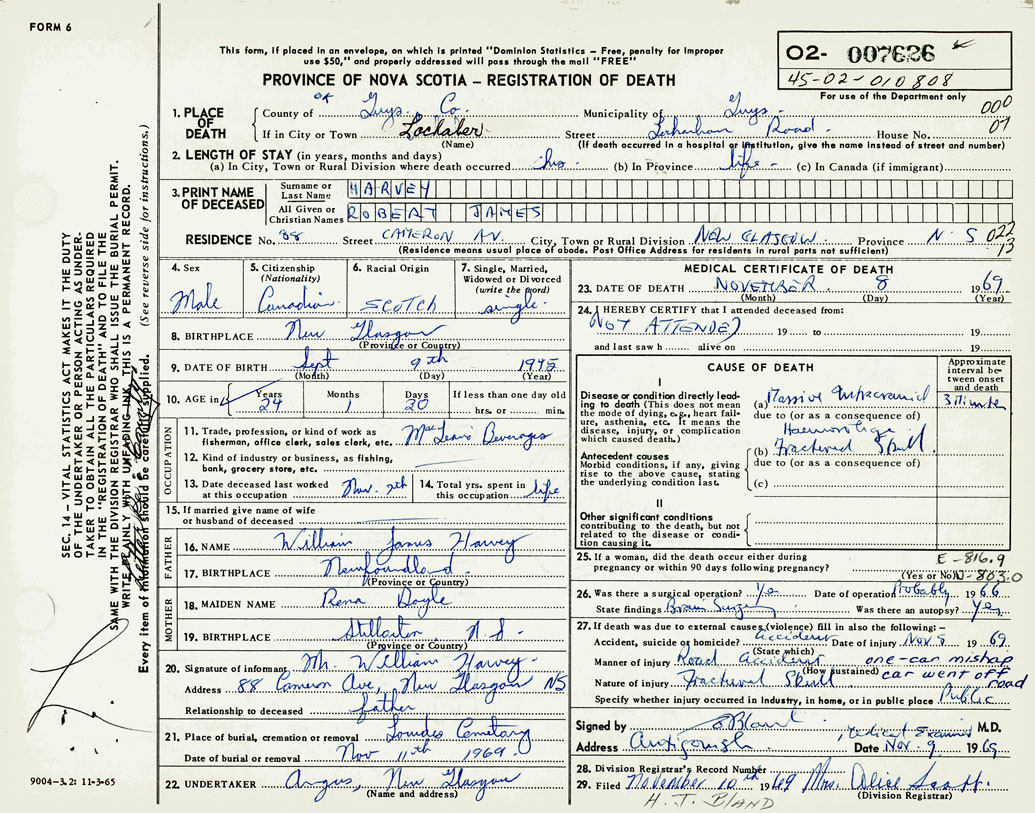 FORM 6
This form, if placed in an envelope, on which is printed "Dominion Statistics – Free, penalty for improper
use $50," and properly addressed will pass through the mail "FREE"
O2- 007636
45-02-010808
For use of the Department only
PROVINCE OF NOVA SCOTIA – REGISTRATION OF DEATH
000
07
1. PLACE OF DEATH
County of Guys. Co. Municipality of Guys.
If in City or Town Lochaber Street Road. House No.
(Name) (If death occurred in a hospital or institution, give the name instead of street and number)
2. LENGTH OF STAY (in years, months and days)
(a) In City, Town or Rural Division where death occurred hrs. (b) In Province life - (c) In Canada (if immigrant)
3. PRINT NAME OF DECEASED
Surname or Last Name HARVEY
All Given or Christian Names ROBERT JAMES
RESIDENCE No. 88 Street CAMERON AV. City, Town or Rural Division NEW GLASGOW. Province N. S 022
13
(Residence means usual place of abode. Post Office Address for residents in rural parts not sufficient)
4. Sex Male
5. Citizenship (Nationality) Canadian
6. Racial Origin SCOTCH
7. Single, Married, Widowed or Divorced (write the word) single.
8. BIRTHPLACE New Glasgow
(Province or Country)
9. DATE OF BIRTH Sept 9th 1945
(Month) (Day) (Year)
10. AGE in Years 24 Months 1 Days 20 If less than one day old hrs. or min.
OCCUPATION
11. Trade, profession, or kind of work as fisherman, office clerk, sales clerk, etc. MacLean's Beverages
12. Kind of industry or business, as fishing, bank, grocery store, etc.
13. Date deceased last worked at this occupation Nov. 7th
14. Total yrs. spent in this occupation life
15. If married give name of wife or husband of deceased
FATHER
16. NAME William James Harvey
17. BIRTHPLACE Newfoundland.
(Province or Country)
MOTHER
18. MAIDEN NAME Rena Doyle
19. BIRTHPLACE Stellarton N.S.
(Province or Country)
20. Signature of informant Mr. William Harvey.
Address 88 Cameron Ave, New Glasgow NS
Relationship to deceased father
21. Place of burial, cremation or removal Lourdes Cemetary
Date of burial or removal Nov 11th 1969.
22. UNDERTAKER Angus, New Glasgow
(Name and address)
MEDICAL CERTIFICATE OF DEATH
23. DATE OF DEATH NOVEMBER. 8 1969
(Month) (Day) (Year)
24. I HEREBY CERTIFY that I attended deceased from:
NOT ATTENDED 19 to 19
and last saw h alive on 19
CAUSE OF DEATH
Approximate interval between onset and death
I
Disease or condition directly leading to death (This does not mean the mode of dying, e.g., heart failure, asthenia, etc. It means the disease, injury, or complication which caused death.)
(a) Massive Intracranial 3 Minutes
due to (or as a consequence of)
Haemorrhage
(b) Fractured Skull
due to (or as a consequence of)
(c)
Antecedent causes
Morbid conditions, if any, giving rise to the above cause, stating the underlying condition last.
II
Other significant conditions contributing to the death, but not related to the disease or condition causing it.
25. If a woman, did the death occur either during pregnancy or within 90 days following pregnancy?
E-816.9
(Yes or No) N-803.0
26. Was there a surgical operation? Yes Date of operation Probably 1966
State findings Brain Surgery Was there an autopsy? Yes
27. If death was due to external causes (violence) fill in also the following:–
Accident, suicide or homicide? Accident Date of injury Nov 8 1969
(State which)
Manner of injury Road Accident one-car mishap
(How sustained) car went off road
Nature of injury Fractured Skull
Specify whether injury occurred in industry, in home, or in public place Public
Signed by HBland, Medical Examiner M.D.
Address Antigonish Date Nov. 9 1969
28. Division Registrar's Record Number
29. Filed November 10th 1969 Mrs. Alice Scott.
(Division Registrar)
H. J. BLAND
SEC. 14 – VITAL STATISTICS ACT MAKES IT THE DUTY
OF THE UNDERTAKER OR PERSON ACTING AS UNDER-
TAKER TO OBTAIN ALL THE PARTICULARS REQUIRED
IN THE "REGISTRATION OF DEATH" AND TO FILE THE
SAME WITH THE DIVISION REGISTRAR WHO SHALL ISSUE THE BURIAL PERMIT.
WRITE PLAINLY WITH UNFADING INK, THIS IS A PERMANENT RECORD.
Every item of information should be carefully supplied. (See reverse side for instructions.)
9004-3.2: 11-3-65